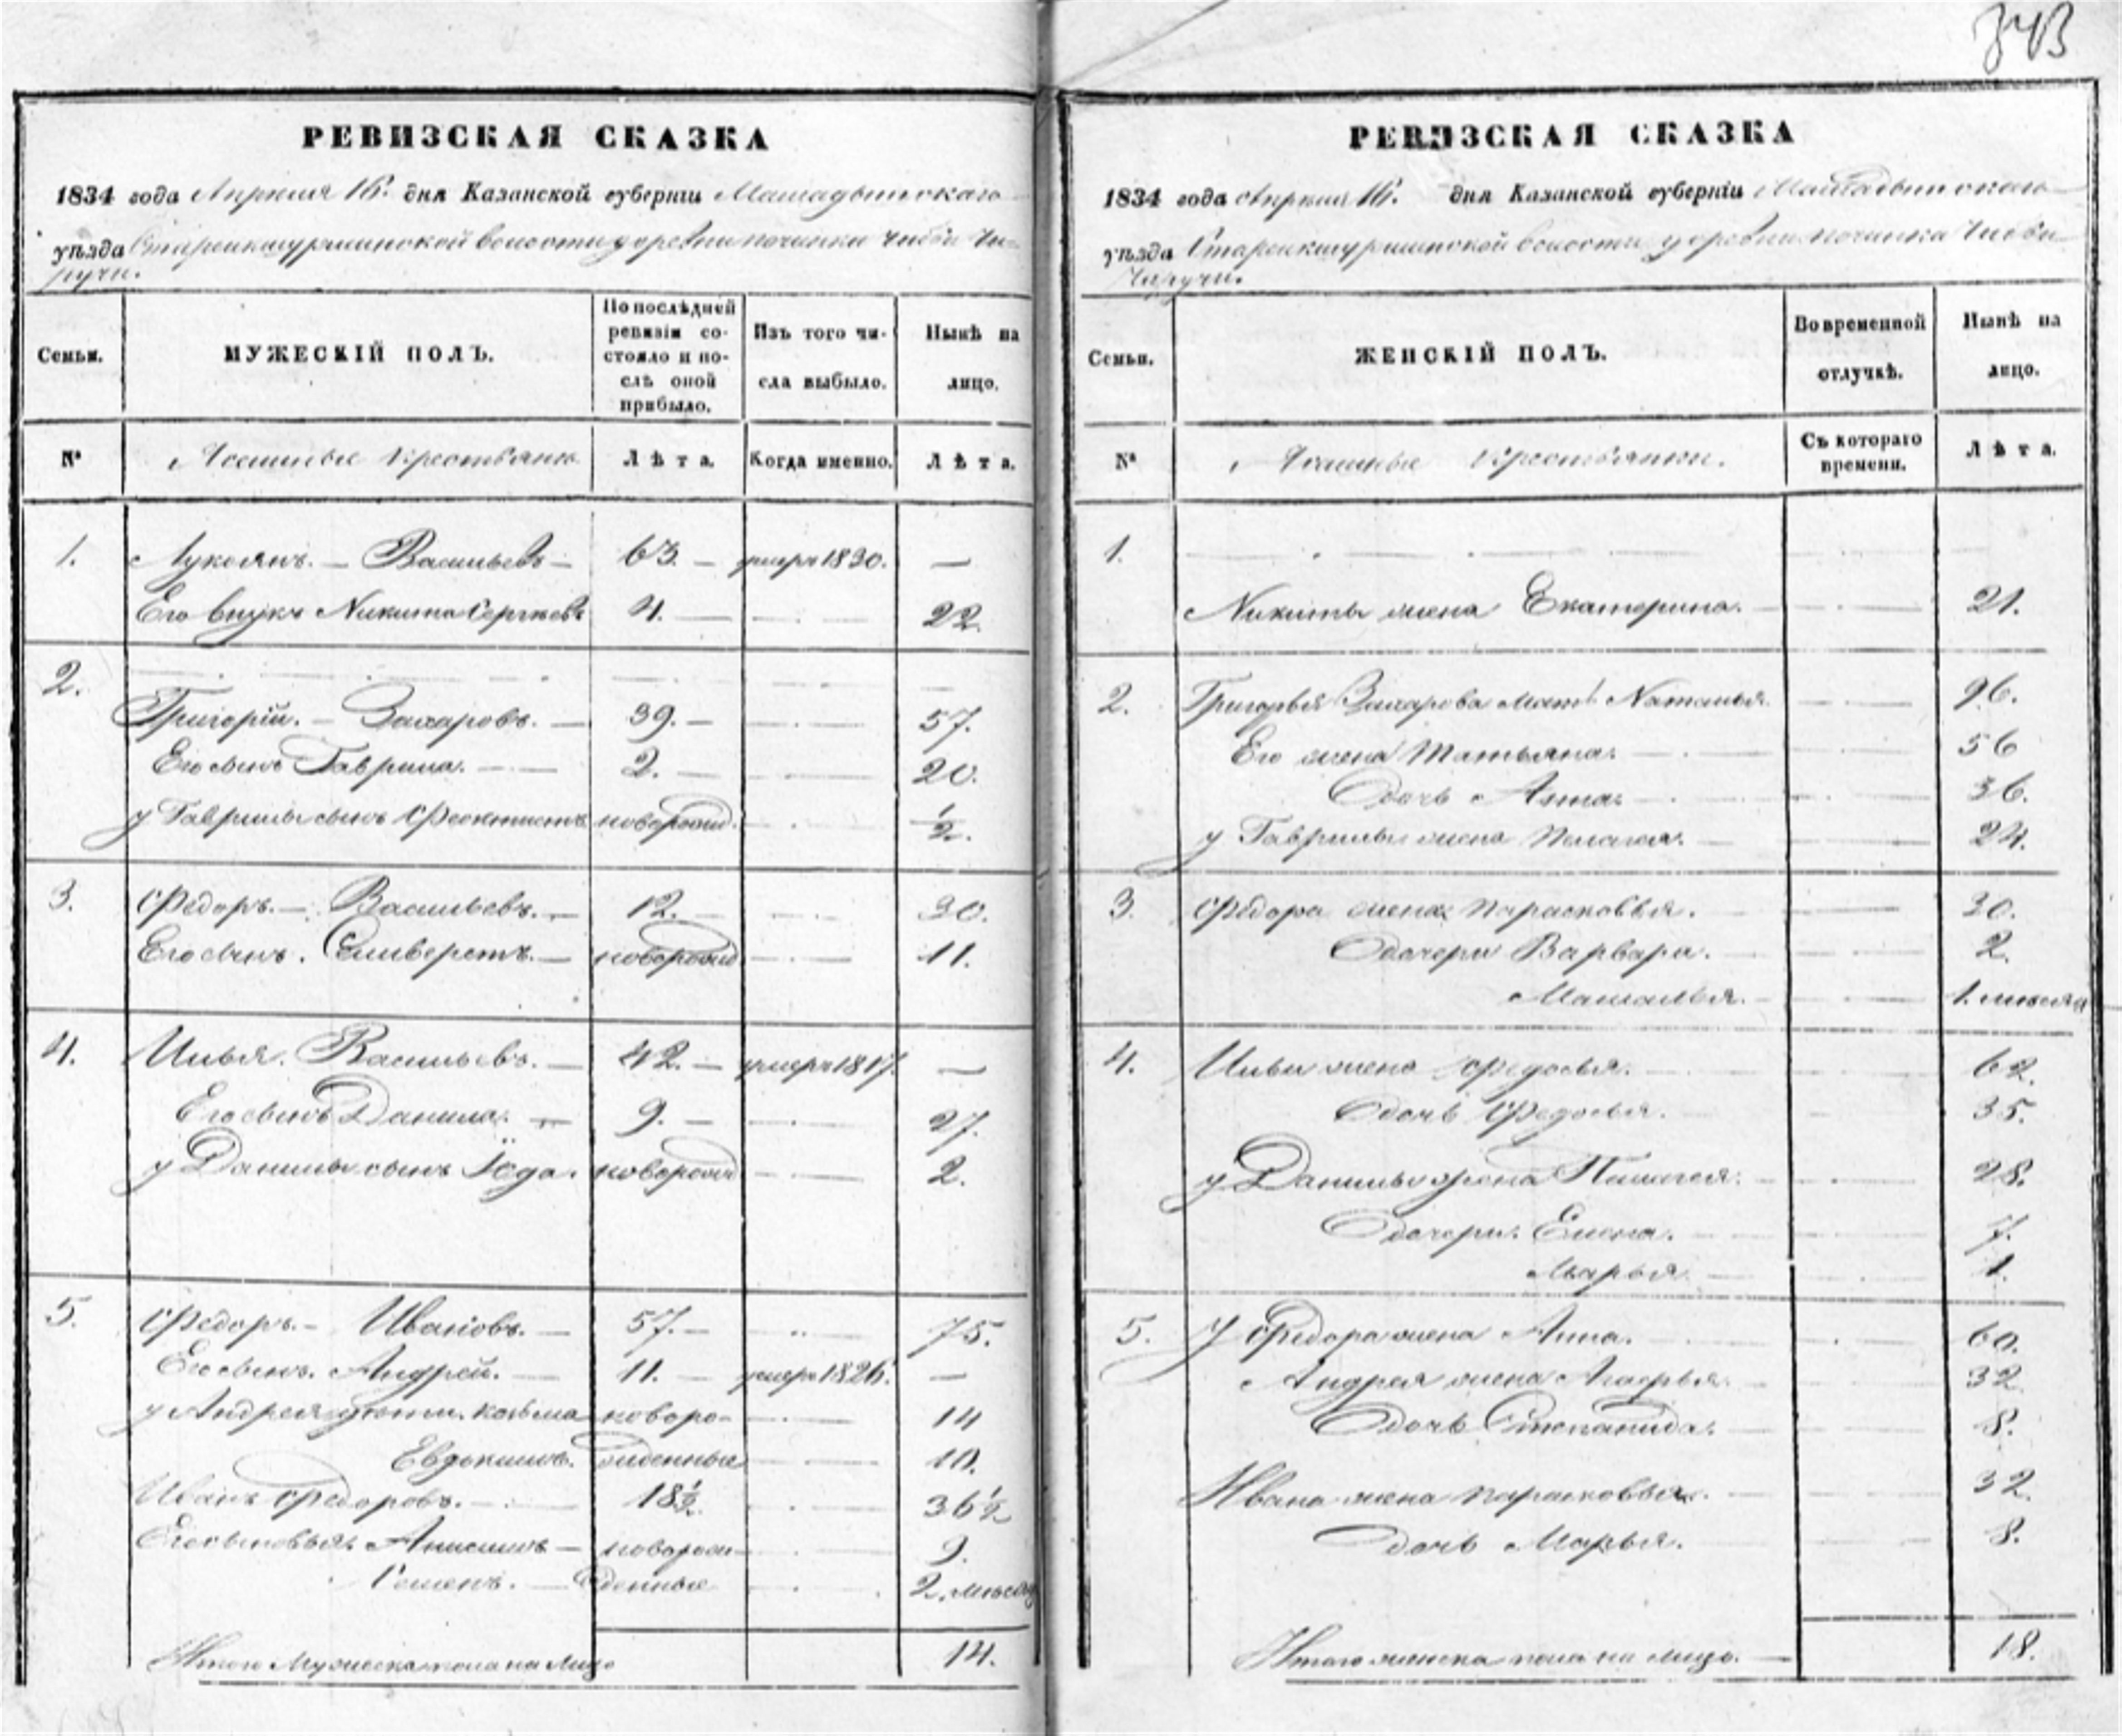 343
РЕВИЗСКАЯ СКАЗКА
1834 года Апреля 16. дня Казанской губерніи Мамадышскаго
уѣзда волости деревни починка Чиби Чи-
ручи.
Семьи.
МУЖЕСКІЙ ПОЛЪ.
По послѣдней
ревизіи со-
стояло и по-
слѣ оной
прибыло.
Изъ того чи-
сла выбыло.
Нынѣ на
лицо.
№
Ясашные крестьяне
Лѣта.
Когда именно.
Лѣта.
1. Лукоянъ. — Васильевъ — 63. — умеръ 1830. —
Его внукъ Никита Сергѣевъ 4. — 22.
2.
Григорій. — Захаровъ. — 39. — 57.
Его сынъ Гаврила. — 2. — 20.
у Гаврилы сынъ Феоктистъ новорожд. 1/2.
3. Федоръ. — Васильевъ. — 12. — 30.
Его сынъ. Селиверстъ. — новорожд 11.
4. Илья. Васильевъ. — 42. — умеръ 1817. —
Его сынъ Данила. — 9. — 27.
у Данилы сынъ Іюда. новорожд 2.
5. Федоръ. — Ивановъ. — 57. — 75.
Его сынъ. Андрей. — 11. — умеръ 1826. —
у Андрея дѣти. Козьма новоро- 14
Евдокимъ. жденные 10.
Иванъ Федоровъ. — 18 1/2. 36 1/2
Его сыновья Анисимъ — новорож- 9.
Семенъ. — денные 2. мѣсяц
Итого Мужеска пола на Лицо 14.
РЕВИЗСКАЯ СКАЗКА
1834 года Апреля 16. дня Казанской губерніи Мамадышскаго
уѣзда волости деревни починка Чиби
Чиручи.
Семьи.
ЖЕНСКІЙ ПОЛЪ.
Во временной
отлучкѣ.
Нынѣ на
лицо.
№
Ясашные крестьянки.
Съ котораго
времени.
Лѣта.
1.
Никиты жена Екатерина. 21.
2. Григорья Захарова мать Наталья 96.
Его жена Татьяна. 56
дочь Анна 36.
у Гаврилы жена Пелагея. 24.
3. Федора жена Парасковья. 30.
дочери Варвара. 2.
1. мѣсяца
4. Ильи жена Федосья. 62.
дочь Федосья. 35.
у Данилы жена Пелагея. 28.
дочери. Елена. 7.
Марья 1.
5. У Федора жена Анна. 60.
Андрея жена Агафья. 32
дочь Степанида. 8.
Ивана жена Парасковья. 32.
дочь Марья. 8.
Итого женска пола на лицо. — 18.